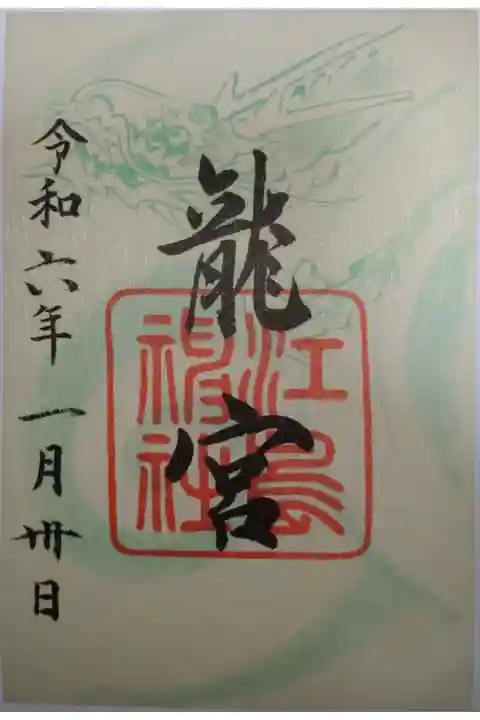 龍宮
江島神社
令和六年一月卅日